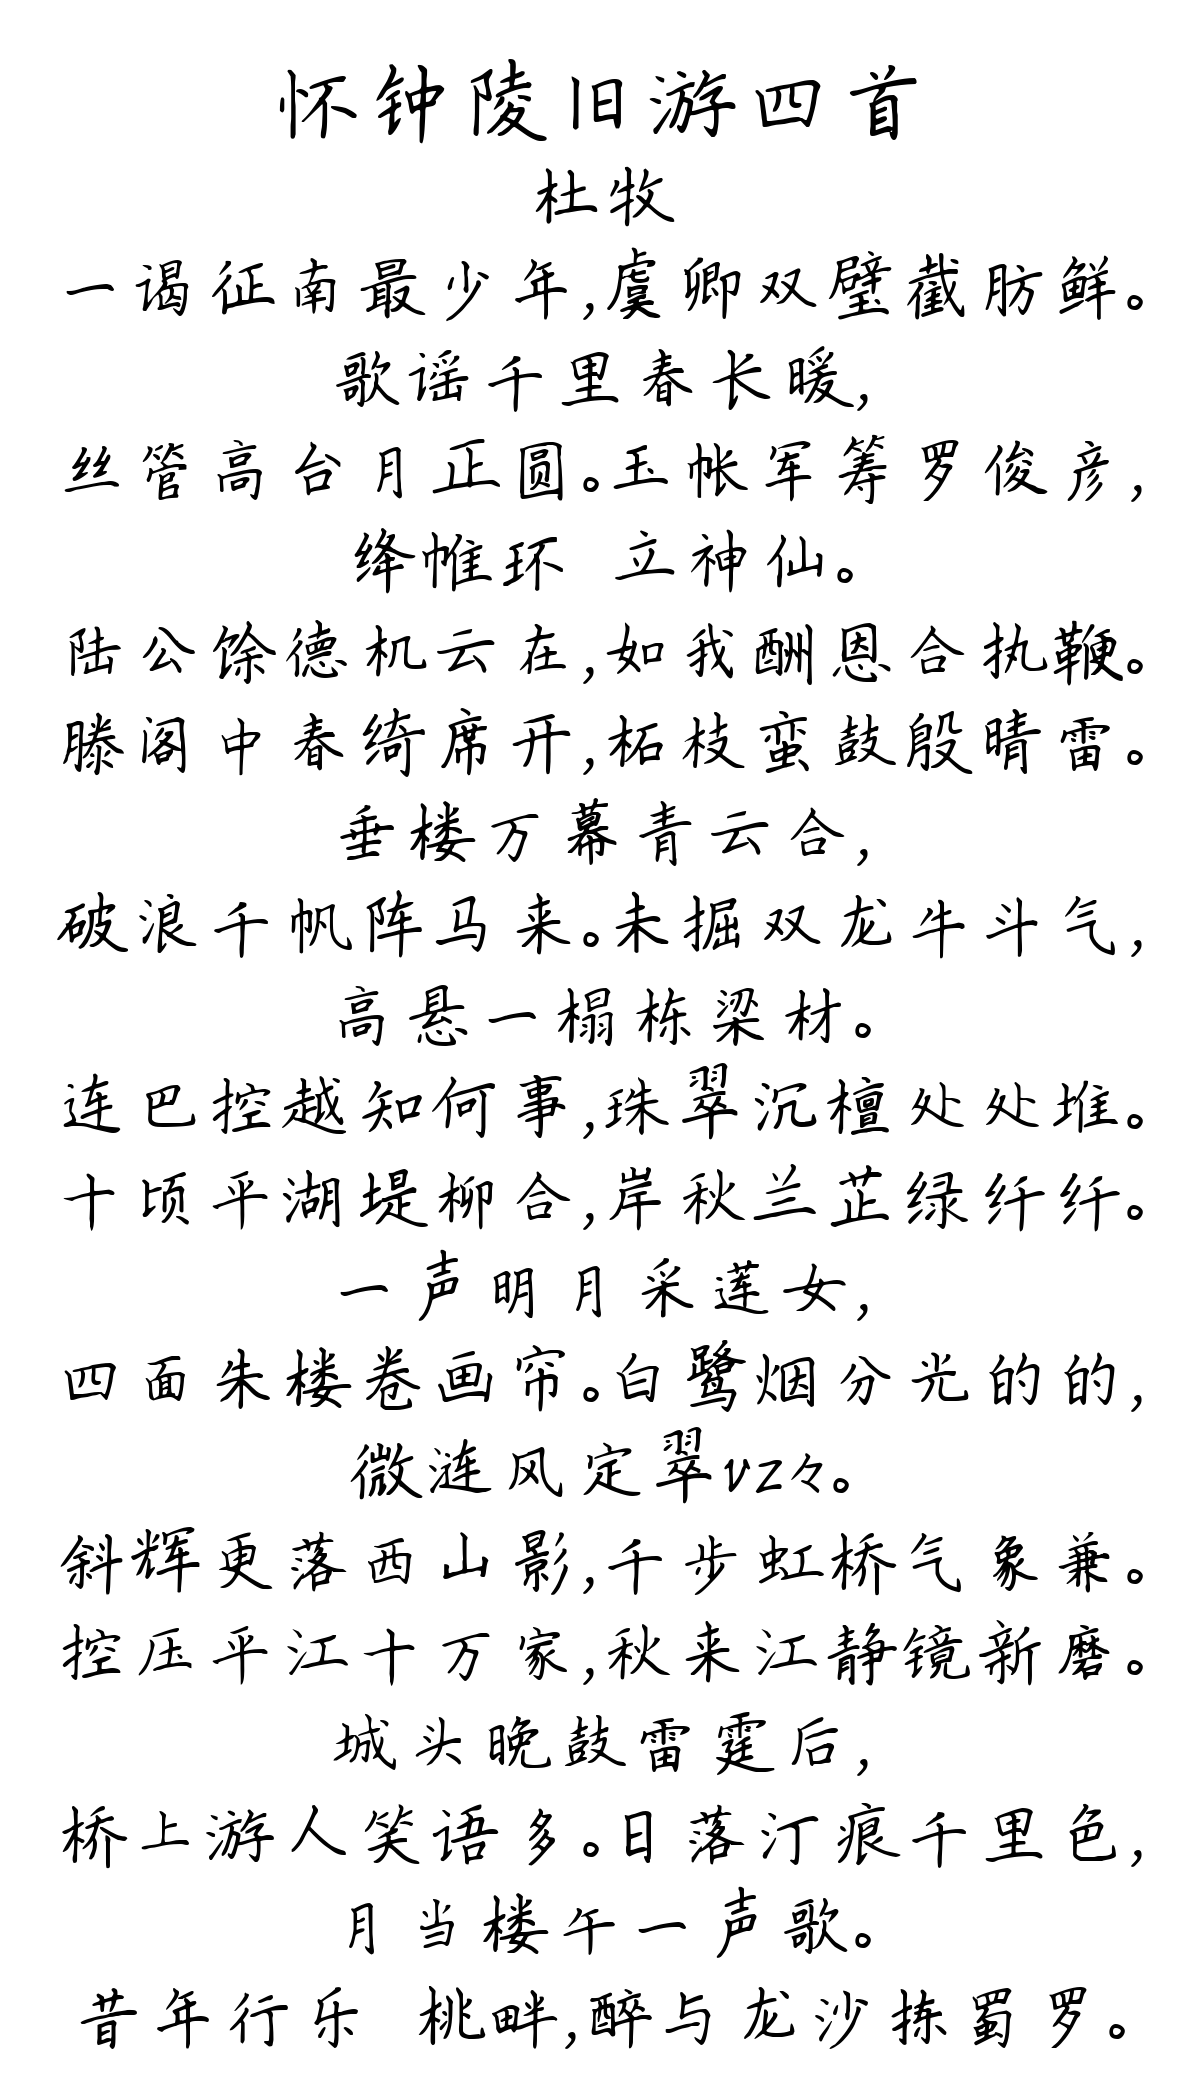 怀钟陵旧游四首
杜牧
一谒征南最少年,虞卿双璧截肪鲜。
歌谣千里春长暖,
丝管高台月正圆。玉帐军筹罗俊彦,
绛帷环 立神仙。
陆公馀德机云在,如我酬恩合执鞭。
滕阁中春绮席开,柘枝蛮鼓殷晴雷。
垂楼万幕青云合,
破浪千帆阵马来。未掘双龙牛斗气,
高悬一榻栋梁材。
连巴控越知何事,珠翠沉檀处处堆。
十顷平湖堤柳合,岸秋兰芷绿纤纤。
一声明月采莲女,
四面朱楼卷画帘。白鹭烟分光的的,
微涟风定翠vz々。
斜辉更落西山影,千步虹桥气象兼。
控压平江十万家,秋来江静镜新磨。
城头晚鼓雷霆后,
桥上游人笑语多。日落汀痕千里色,
月当楼午一声歌。
昔年行乐 桃畔,醉与龙沙拣蜀罗。